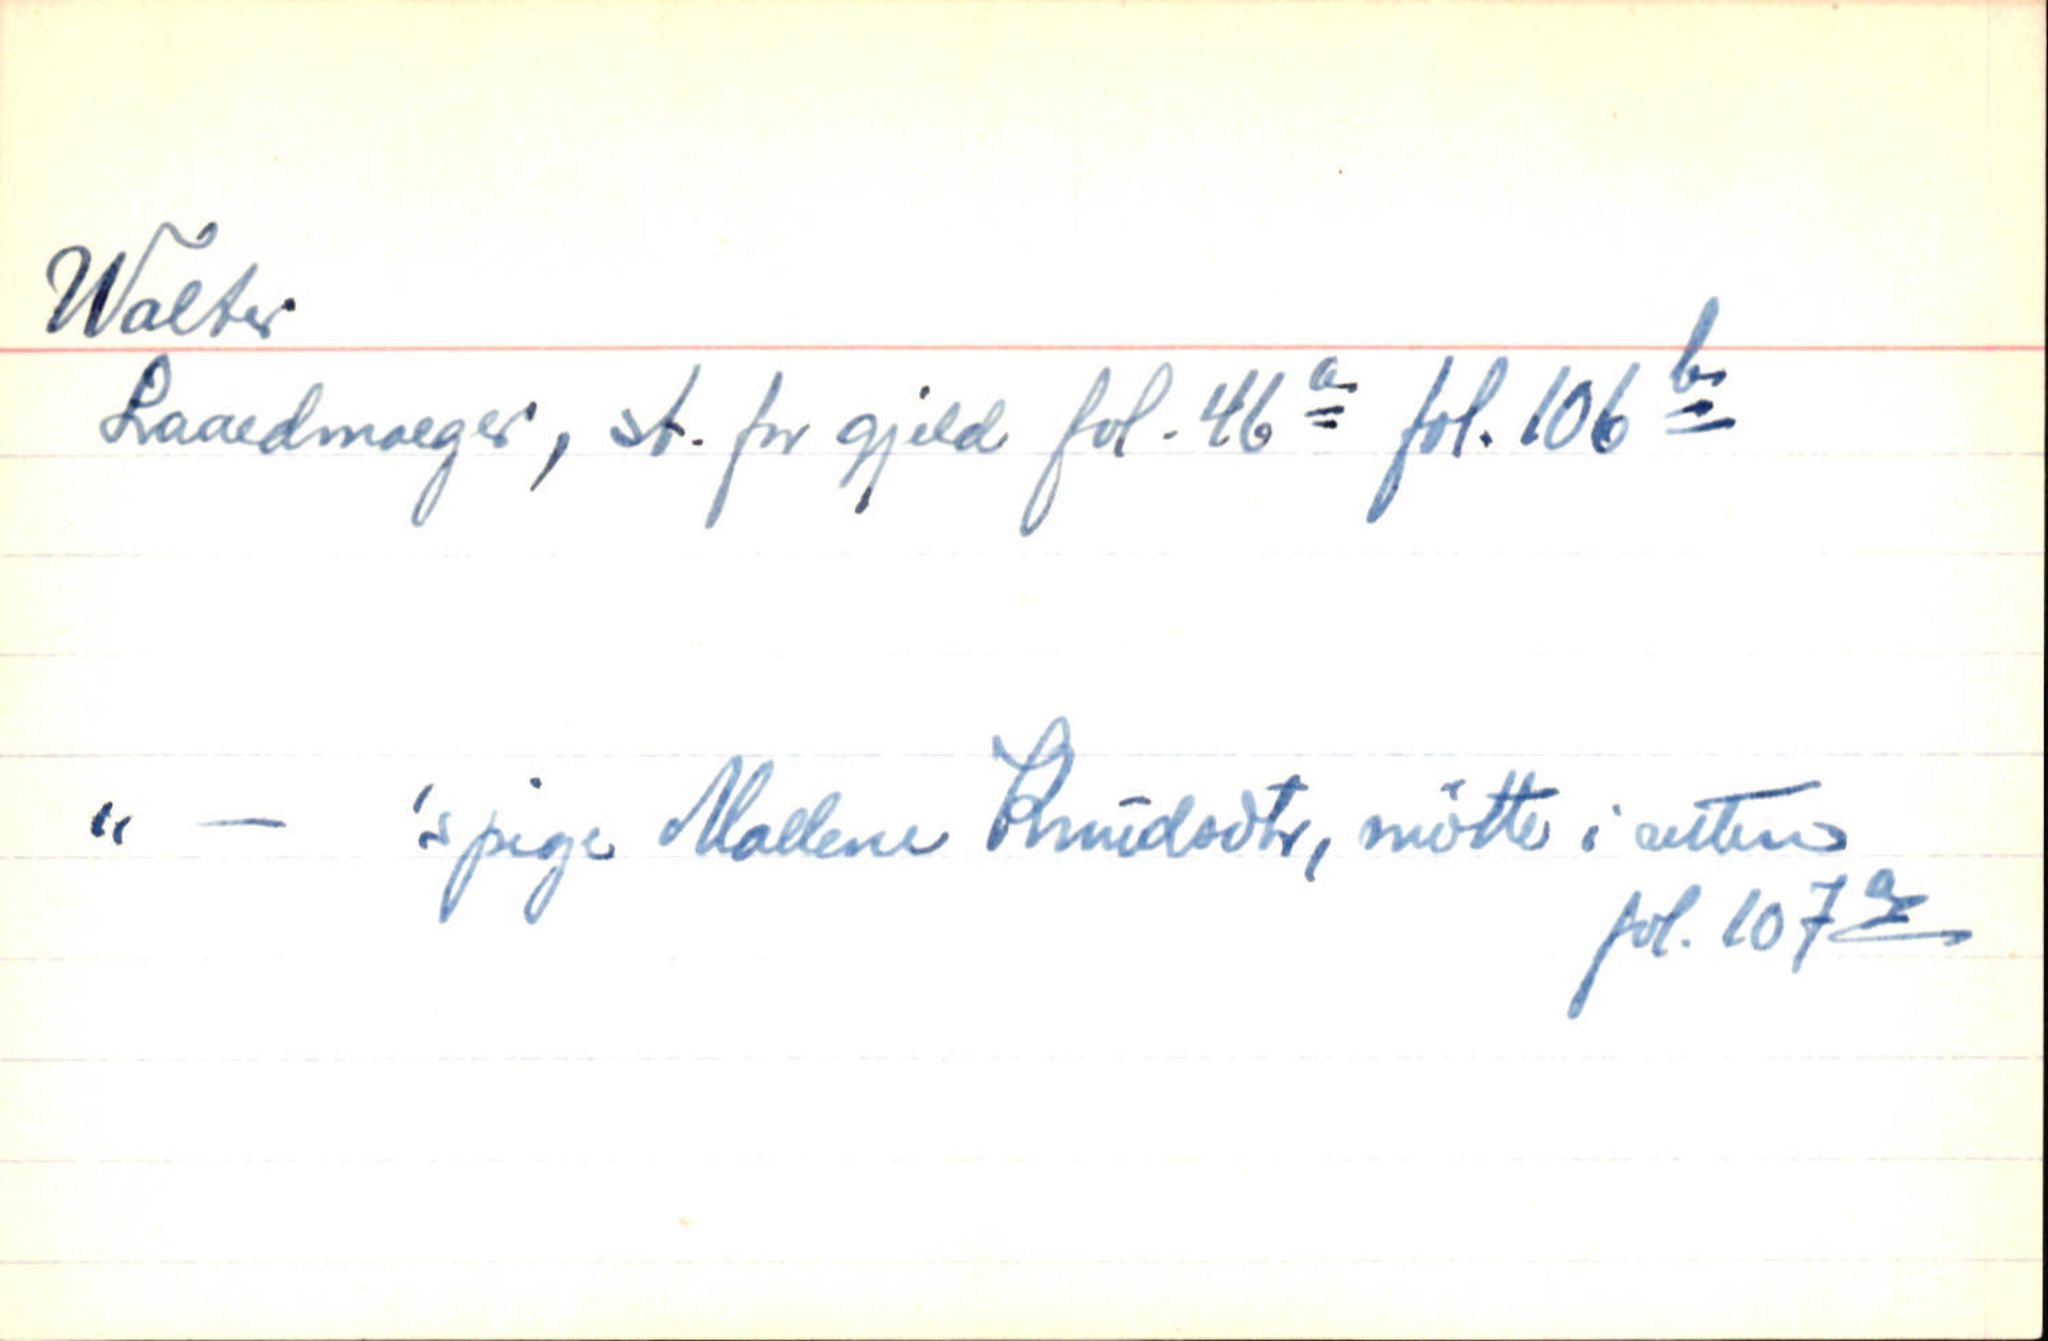 Walter
Laaedmaeger, st. for gjeld fol. 46ᵃ fol. 106ᵇ
" — 's pige Mallene Knudsdtr, mötte i retten
fol. 107ᵃ